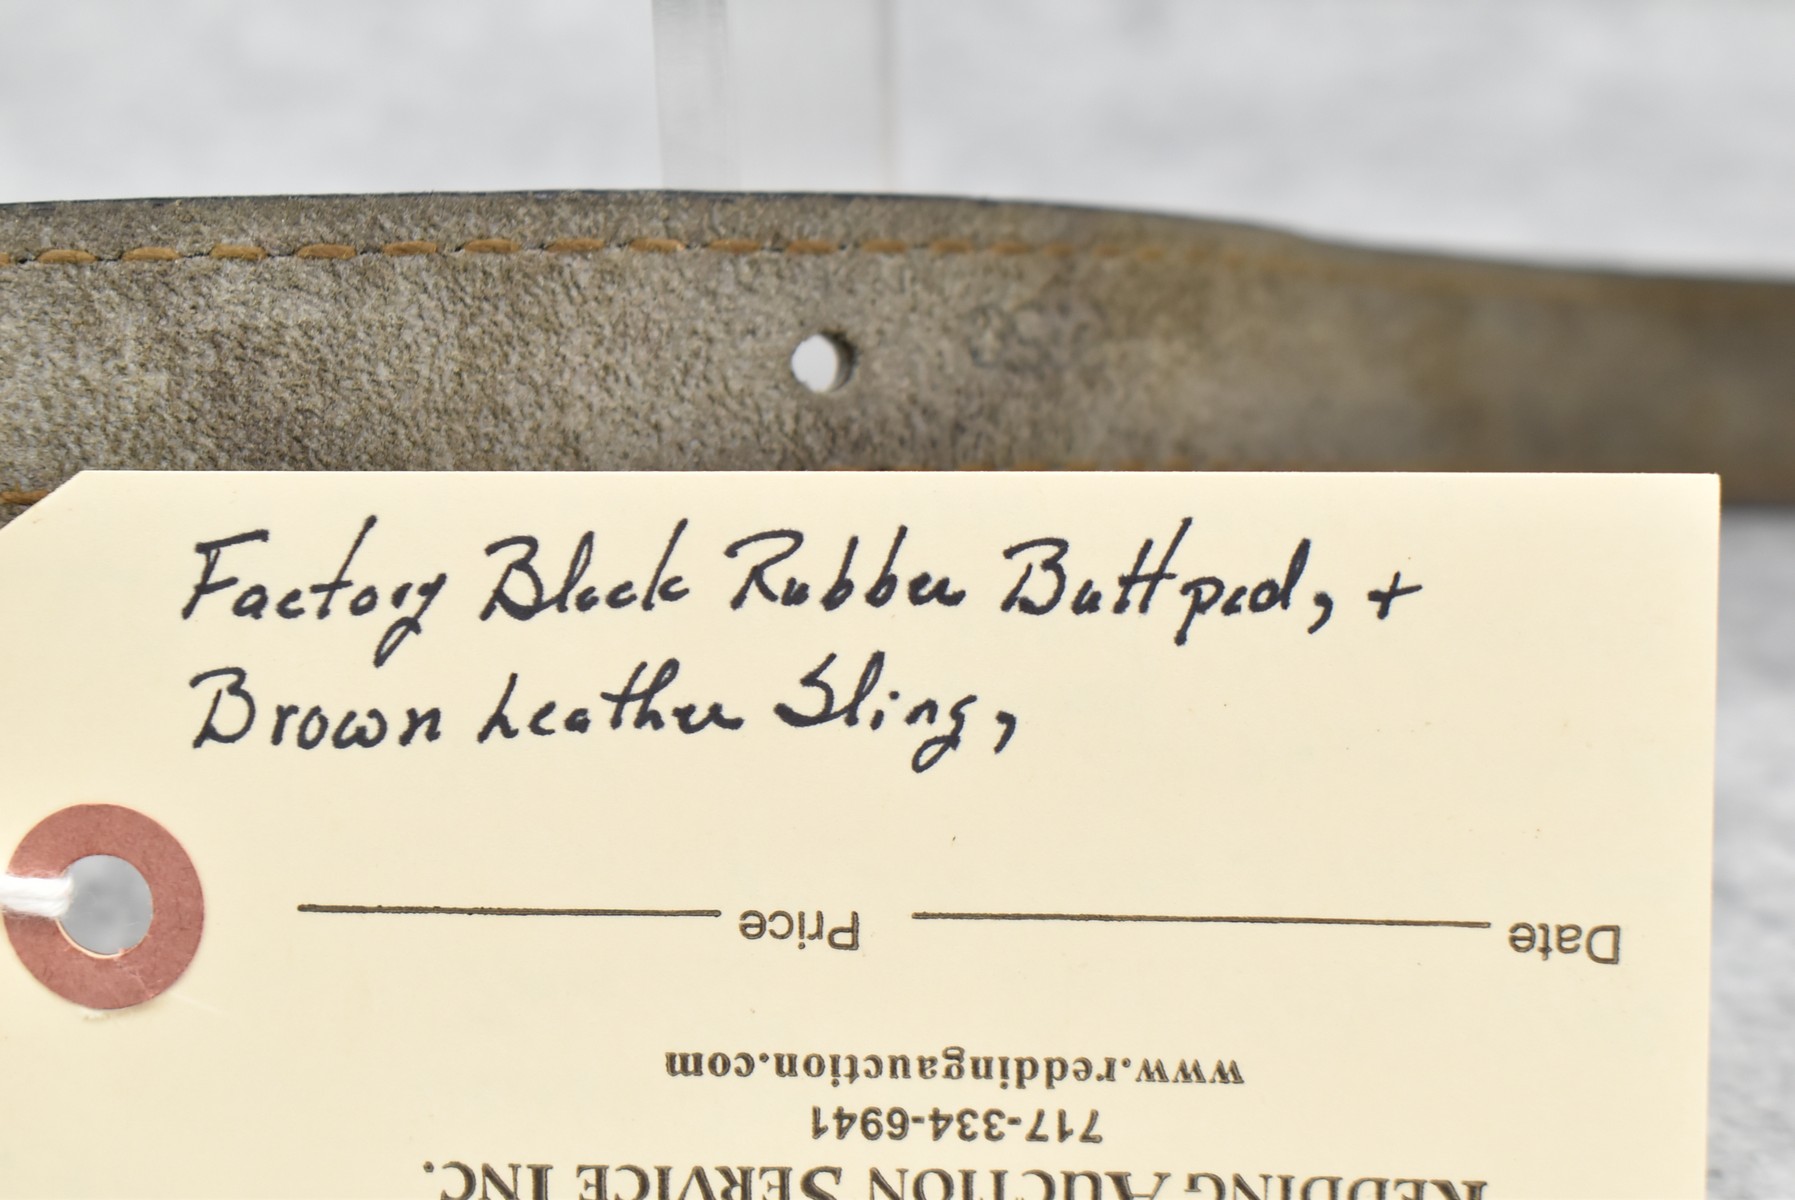 Factory Black Rubber Buttpad, +
Brown Leather Sling,
Date Price
www.reddingauction.com
717-334-6941
REDDING AUCTION SERVICE INC.